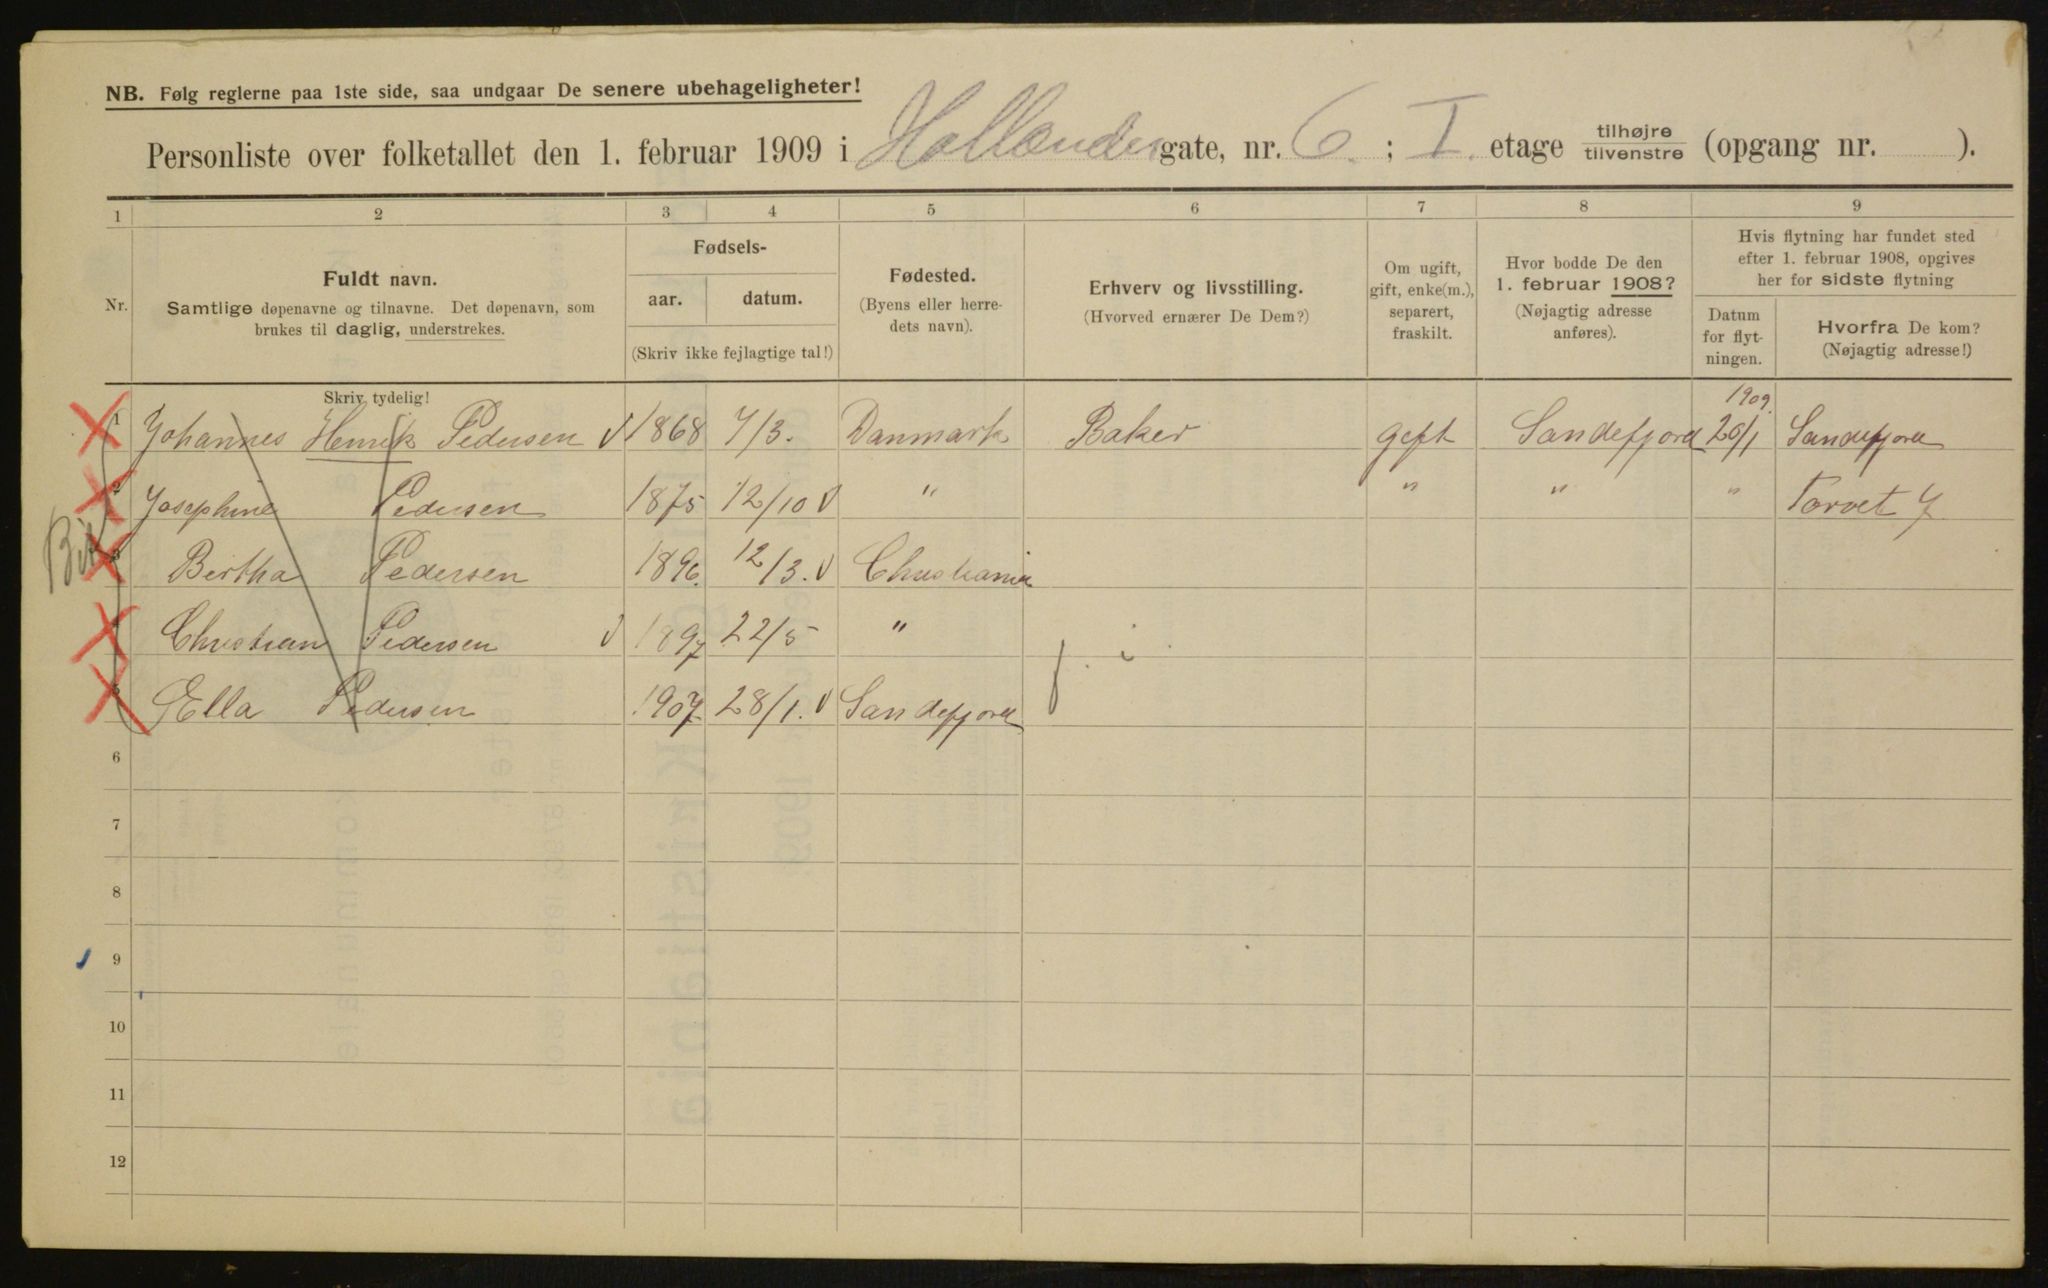 NB. Følg reglerne paa 1ste side, saa undgaar De senere ubehageligheter!
Personliste over folketallet den 1. februar 1909 i Hollændergate, nr. 6. ; I. etage tilhøjre tilvenstre (opgang nr. ).
1 2 3 4 5 6 7 8 9
Nr.
Fuldt navn.
Samtlige døpenavne og tilnavne. Det døpenavn, som
brukes til daglig, understrekes.
Fødsels-
aar. datum.
(Skriv ikke fejlagtige tal!)
Fødested.
(Byens eller herre-
dets navn).
Erhverv og livsstilling.
(Hvorved ernærer De Dem?)
Om ugift,
gift, enke(m.),
separert,
fraskilt.
Hvor bodde De den
1. februar 1908?
(Nøjagtig adresse
anføres).
Hvis flytning har fundet sted
efter 1. februar 1908, opgives
her for sidste flytning
Datum
for flyt-
ningen.
Hvorfra De kom?
(Nøjagtig adresse!)
Skriv tydelig!
1909.
1 Johannes Henrik Pedersen 1868 7/3. Danmark Baker gift Sandefjord 26/1 Sandefjord
2 Josephine Pedersen 1875 12/10 " " " " Torvet 7
3 Bertha Pedersen 1896. 12/3. Christiania
4 Christian Pedersen 1897 22/5 "
5 Ella Pedersen 1907. 28/1. Sandefjord
6
7
8
9
10
11
12